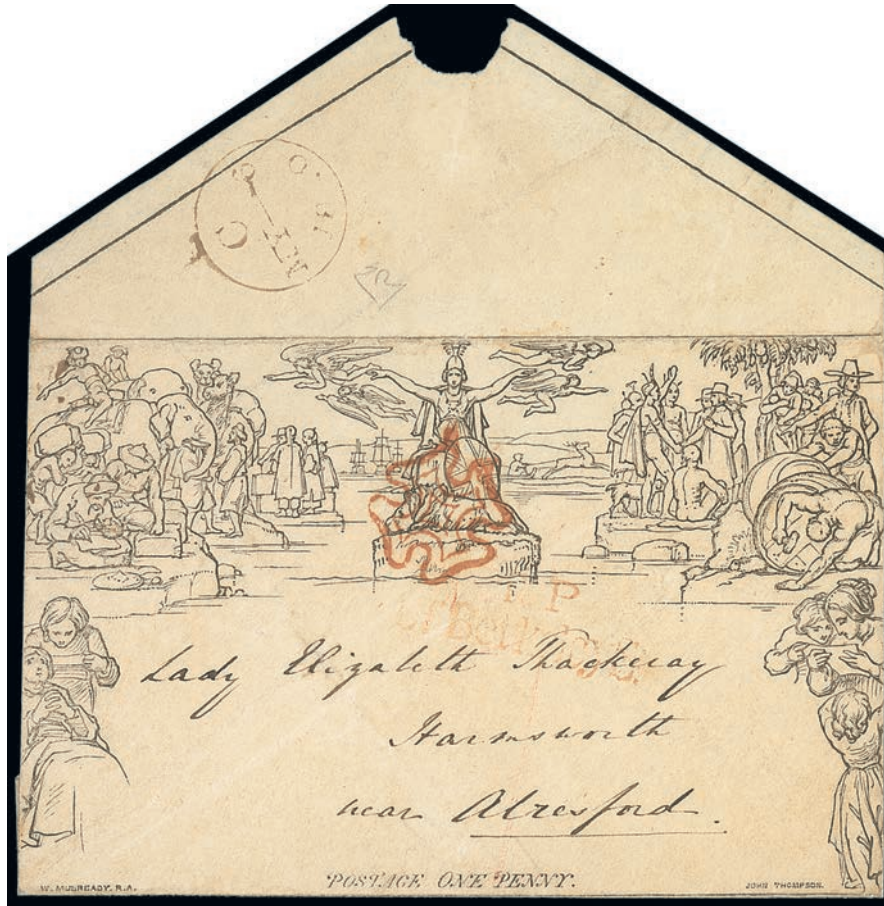 T. P
Lady Elizabeth Thackeray
Harmsworth
near Alresford.
W. MULREADY. R.A.
POSTAGE ONE PENNY.
JOHN THOMPSON.